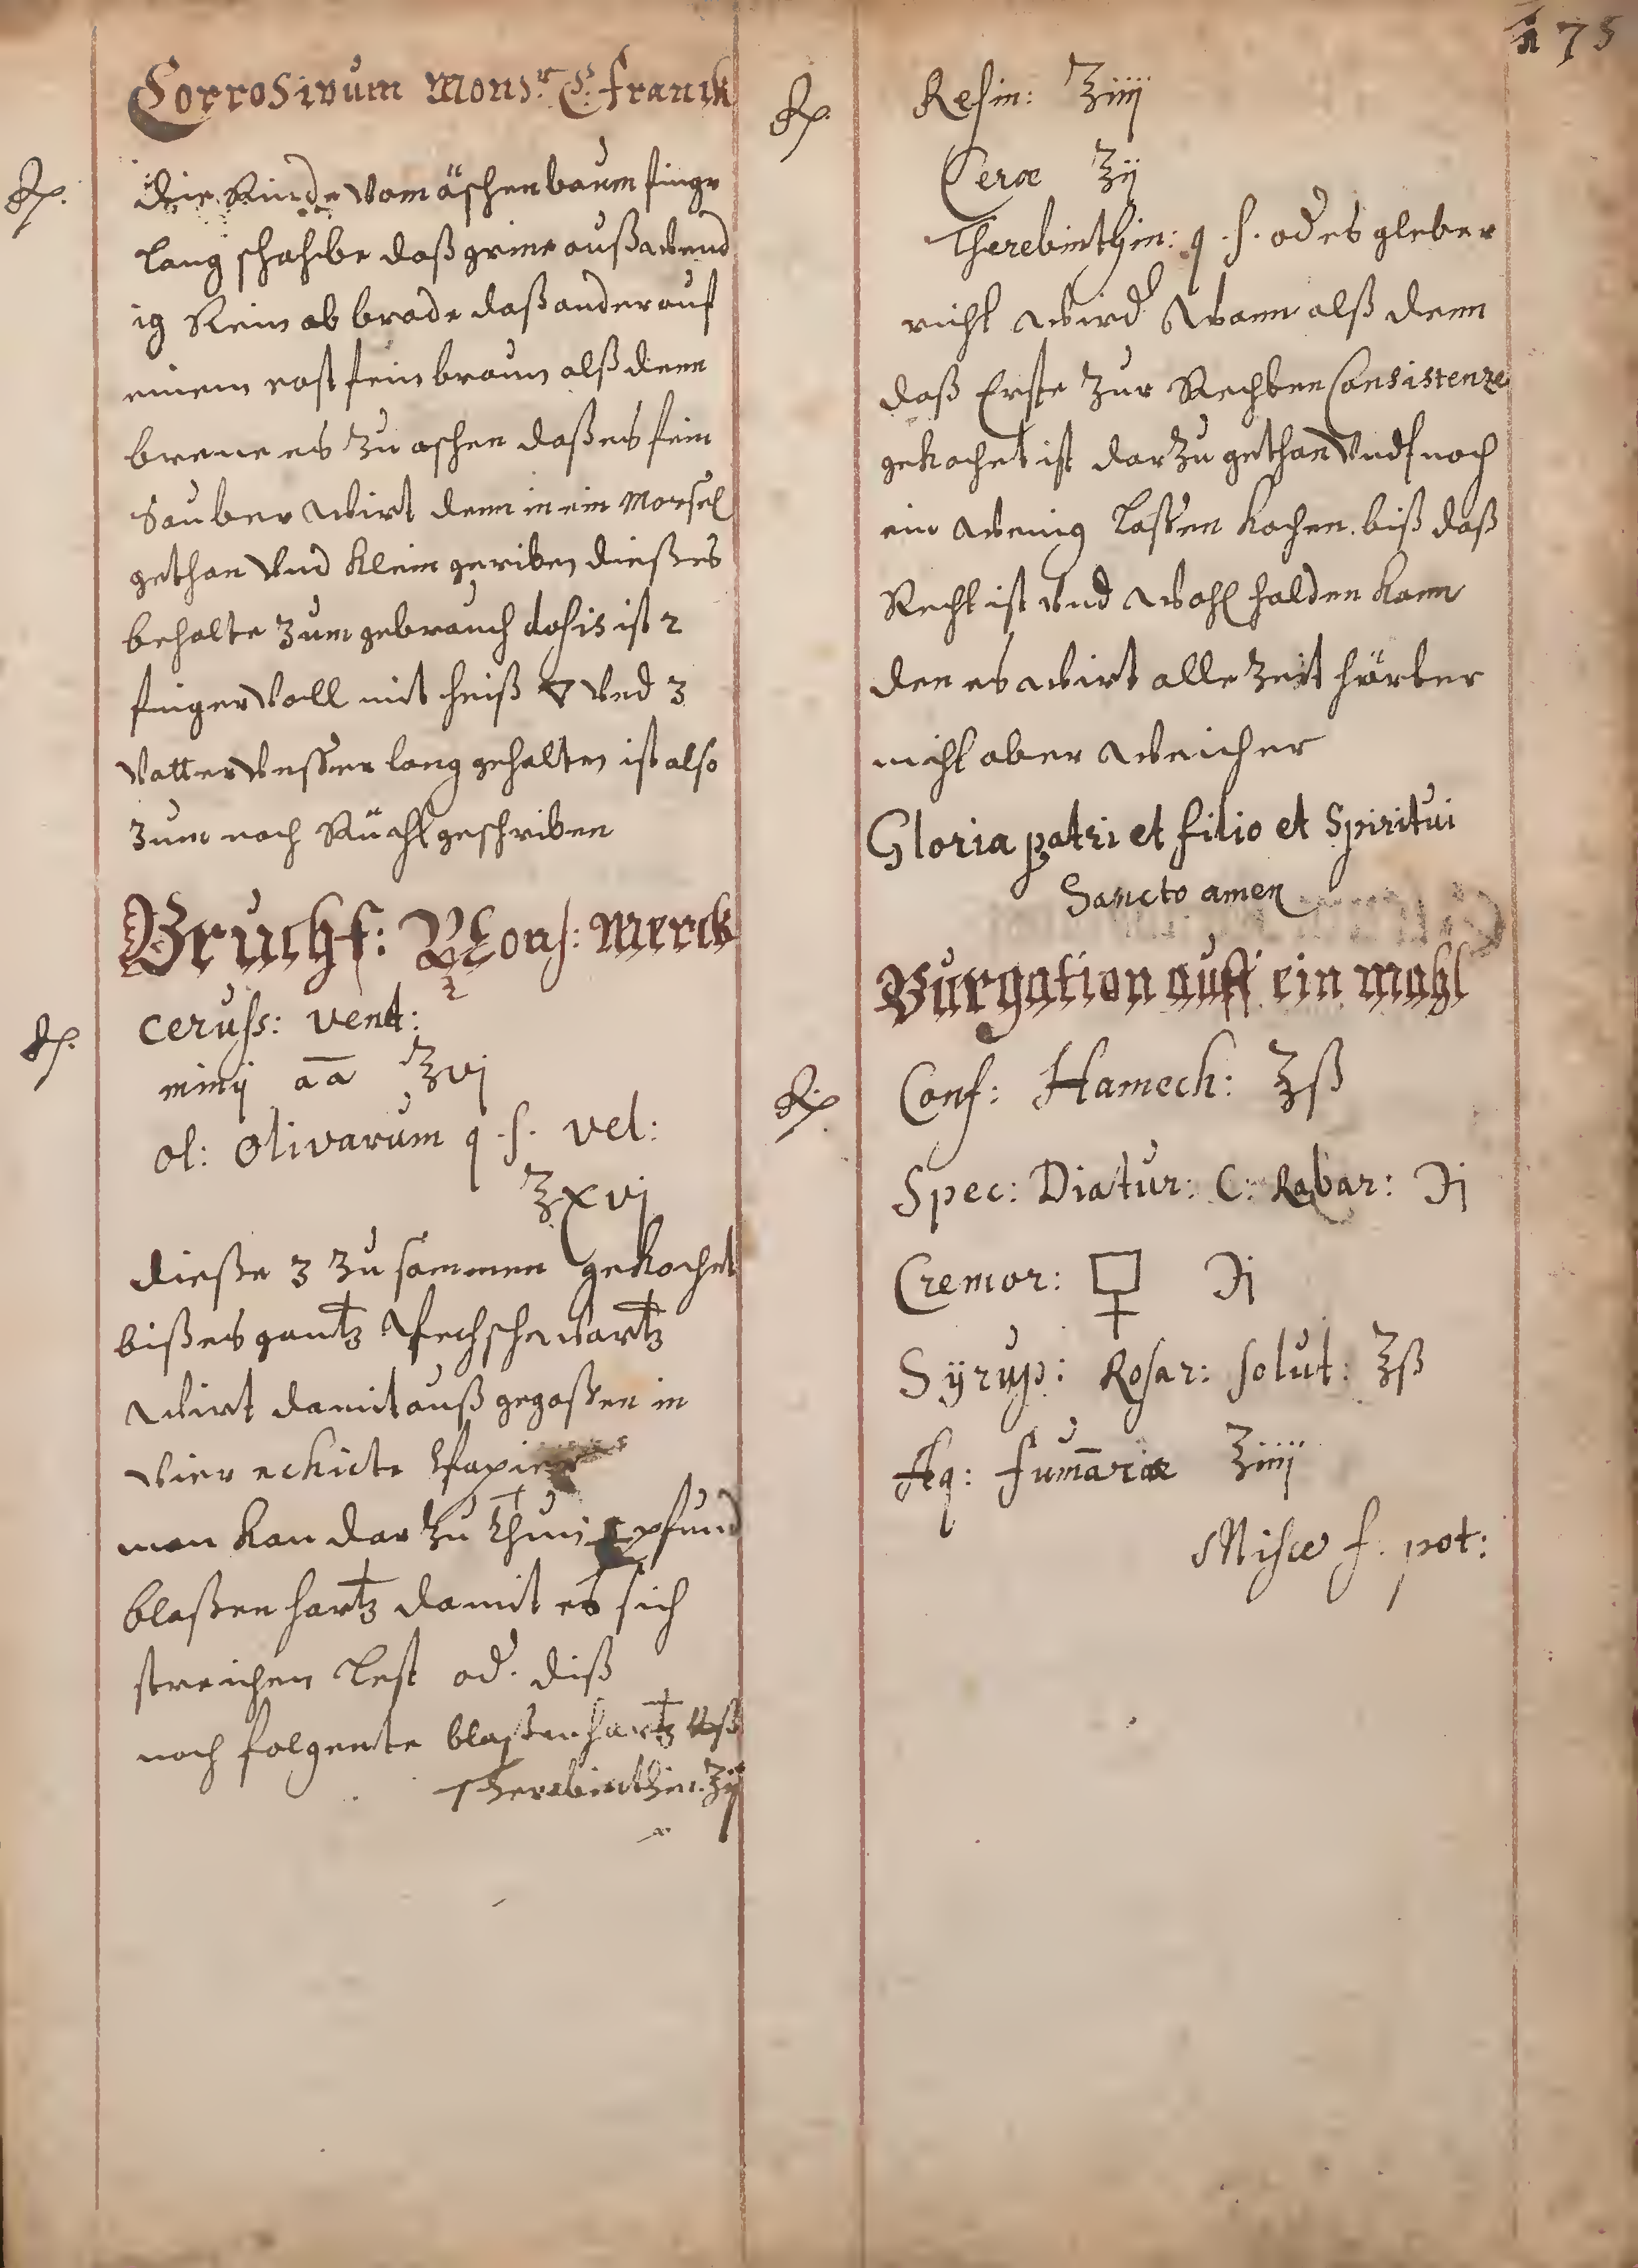 175
Corrosivum Monsr. C. franck
Rp.
die Rinde vom äschenbaum finger
lang schahbe daß grine außwend
ig Rein ab brade daß ander auf
einem rost fein braun alß denn
brene es zu aschen daß es fein
Sauber wirt denn in ein Morsel
gethan vnd klein geriben dießes
behalte zum gebrauch dosis ist 2
finger voll mit heiß 🜄 vnd 3
vatter vnsser lang gehalten ist also
zum nach Rücht geschriben
Bruchf: Mons: Merck
Rp.
Ceruss: vent:
minij āā ℥vj
ol: olivarum q.s. vel:
℥xvj
dieße 3 zu sammen gekochet
biß es gantz Pechschwartz
wirt damit auß gegoßen in
vier eckicte Papier
man kan dar zu thun pfund
blaßen hartz damit es sich
streichen lest od. diß
noch folgente blaßen hartz
Therebinthin. ℥ij
Rp.
Resin: ℥iiij
Ceræ ℥ij
Therebinthin: q.s. od es gleber
richt wird Wann alß denn
daß Erste zur Rechten Consistenze
gekochet ist darzu gethan vnd noch
ein wenig lassen kochen. biß daß
Recht ist vnd wohl halden kann
den es wirt alle zeit härter
nicht aber weicher
Gloria patri et filio et Spiritui
Sancto amen
Purgation auff ein mahl
Rp.
Conf: Hamech: ℥ß
Spec: Diatur: C: Rabar: ℈j
Cremor: 🜿 ℈j
Sÿrup: Rosar: solut: ℥ß
Aq: fumariæ ℥iiij
Misce f. pot: